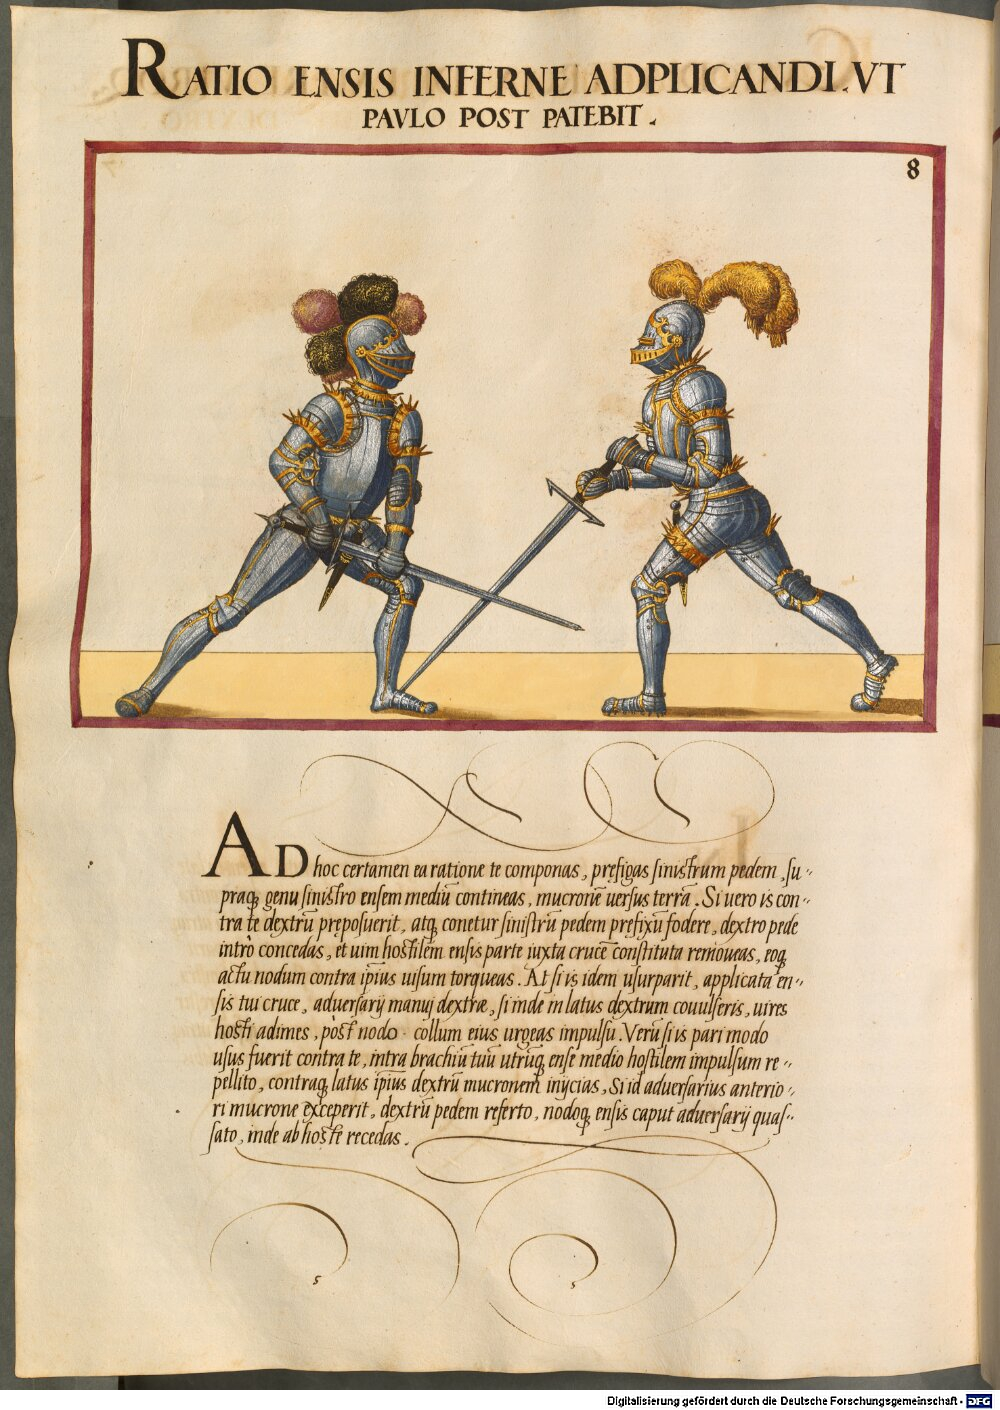 RATIO ENSIS INFERNE ADPLICANDI. VT
PAVLO POST PATEBIT.
8
AD hoc certamen ea ratione te componas, pręfigas sinistrum pedem, su-
praq, genu sinistro ensem mediū contineas, mucronē uersus terrā. Si uero is con-
tra te dextrū pręposuerit, atq, conetur sinistrū pedem prefixū fodere, dextro pede
intrò concedas, et uim hostilem ensis parte iuxta crucē constituta remoueas, eoq
actu nodum contra ipius uisum torqueas. At si is idem usurparit, applicata en-
sis tui cruce, aduersarij manuj dextræ, si inde in latus dextrum couulseris, uires
hosti adimes, pòst nodo collum eius urgeas impulsu. Verū si is pari modo
usus fuerit contra te, intra brachiū tuū utrūq, ense medio hostilem impulsum re-
pellito, contraq, latus ipius dextrū mucronem inijcias, Si id aduersarius anterio-
ri mucrone exceperit, dextrū pedem referto, nodoq, ensis caput aduersarij quas-
sato, inde ab hoste recedas.
Digitalisierung gefördert durch die Deutsche Forschungsgemeinschaft - DFG